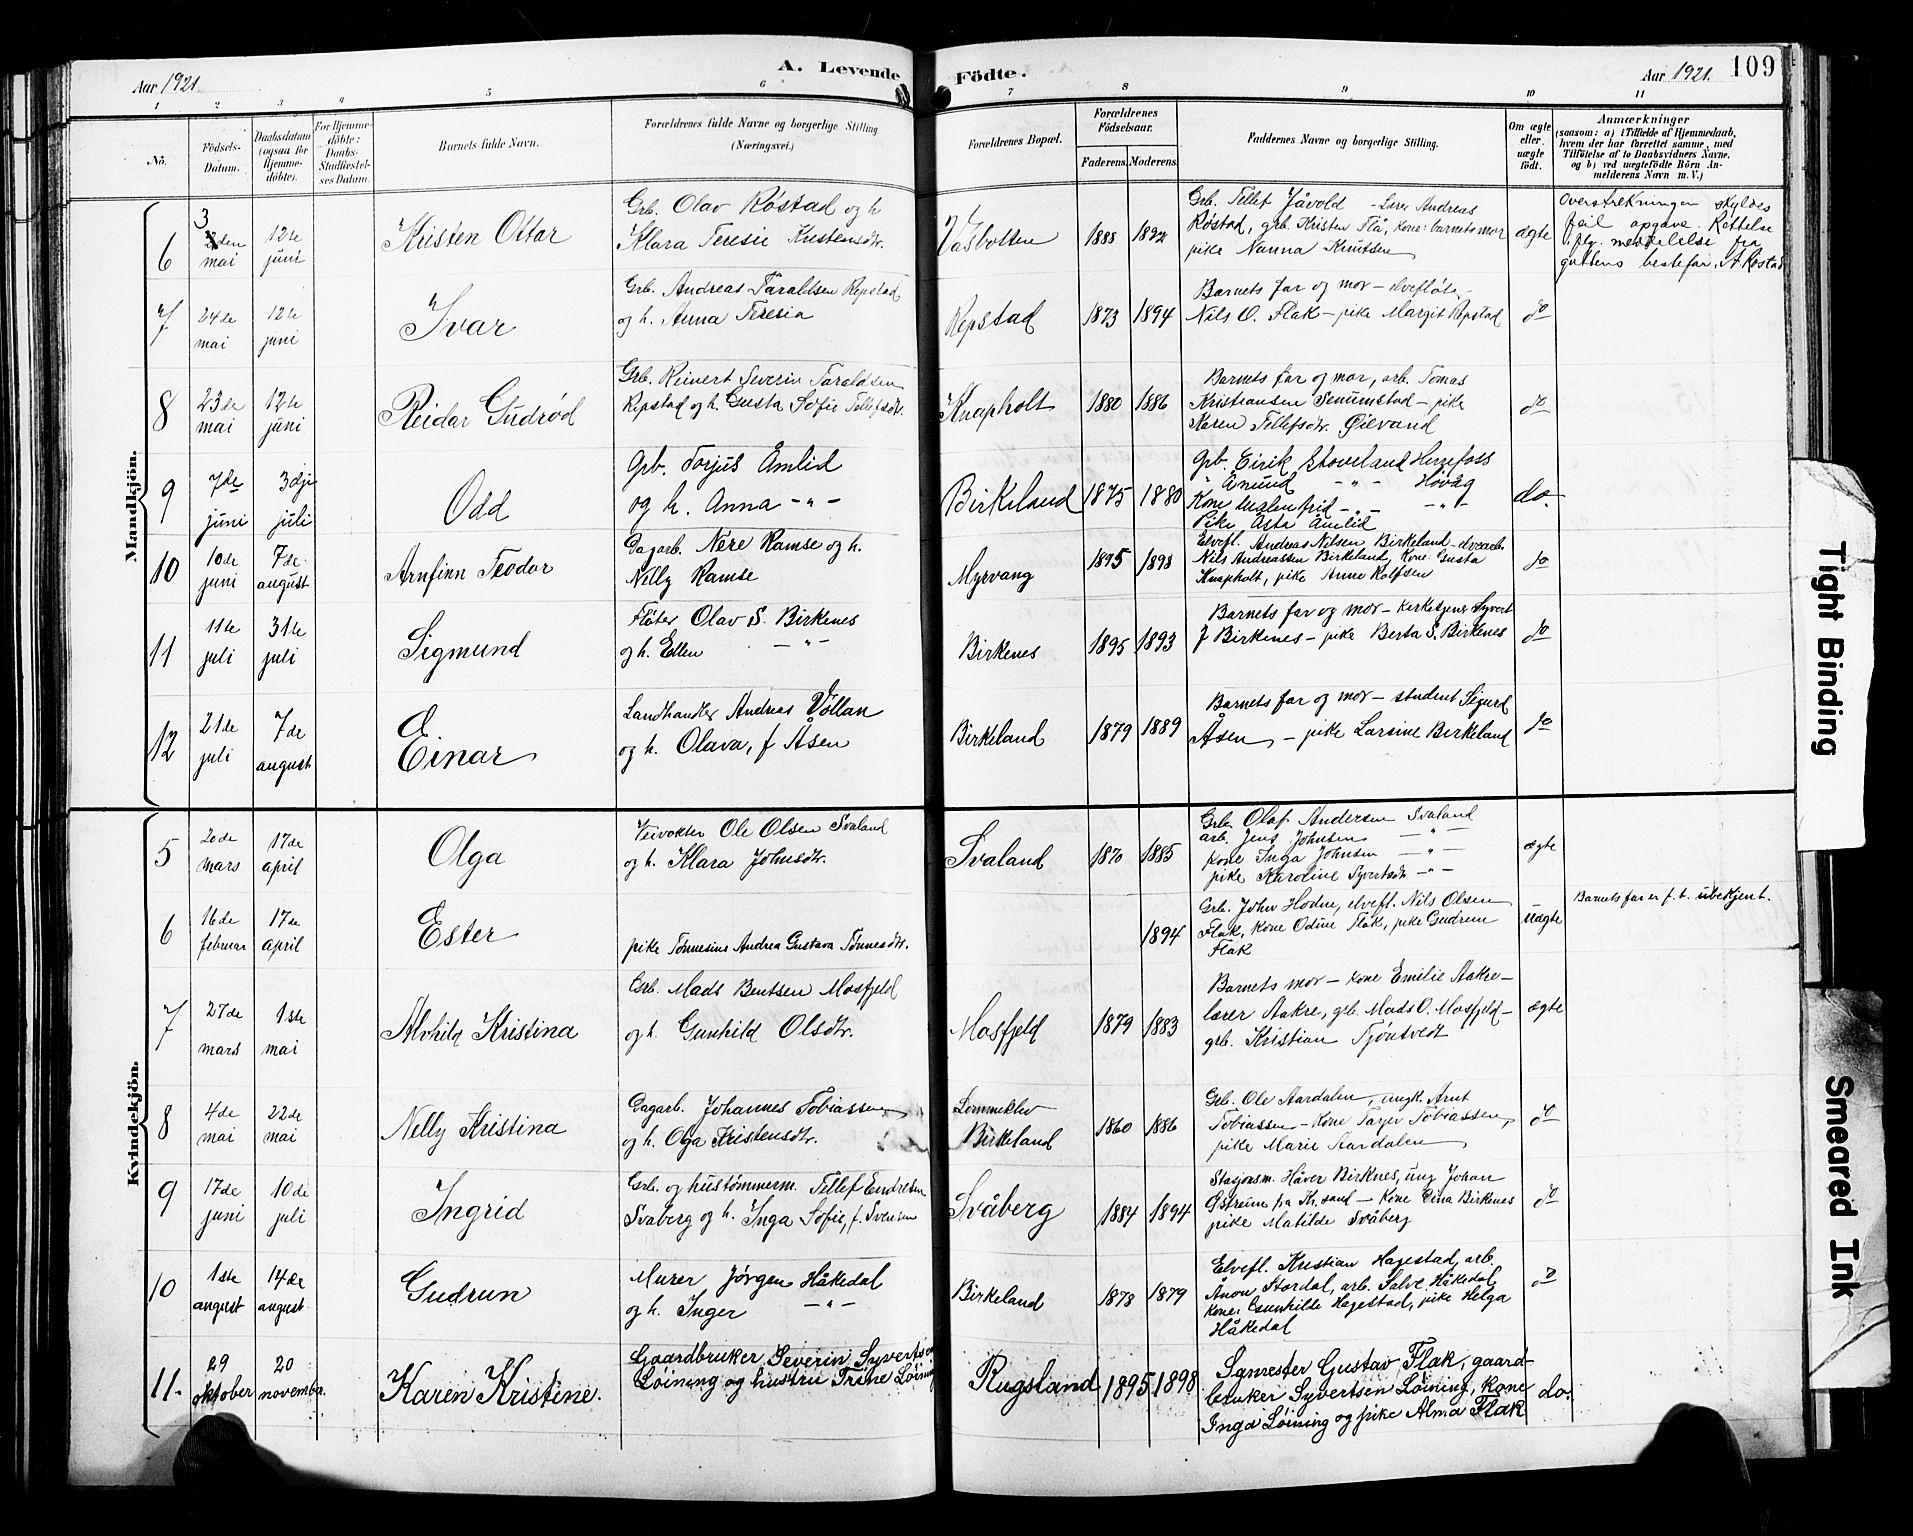 Aar 1921. A. Levende Födte. Aar 1921. 109
1 2 3 4 5 6 7 8 9 10 11
No. Födsels-Datum. Daabsdatum (ogsaa for Hjemmedöbte). For Hjemmedöbte: Daabs-Stadfæstelses Datum. Barnets fulde Navn. Forældrenes fulde Navne og borgerlige Stilling (Næringsvei.) Forældrenes Bopæl. Forældrenes Födselsaar. Faderens. Moderens. Faddernes Navne og borgerlige Stilling. Om ægte eller uægte födt. Anmærkninger (saasom: a) i Tilfælde af Hjemmedaab, hvem der har forrettet samme, med Tilföielse af to Daabsvidners Navne, og b) ved uægtefödte Börn Anmelderens Navn m. V.)
Mandkjön.
6 3 mai 12te juni Kristen Ottar Grb. Olav Røstad og h Klara Teresie Kristensdtr. Vasbotten 1888 1892 Grb. Tellef Jåvold - Lærer Andreas Røstad, grb. Kristen Flå, kone: barnets mor pike Nanna Knutsen ægte Overstrekningen skyldes feil opgave. Rettelse flg. meddelelse fra guttens bestefar, A Røstad
7 24de mai 12te juni Ivar Grb. Andreas Taraldsen Repstad og h. Anna Teresia Repstad 1873 1894 Barnets far og mor - elvefløte- Nils O. Flak - pike Margit Repstad do
8 23de mai 12te juni Reidar Gudrød Grb. Reinert Severin Taraldsen Repstad og h. Gusta Sofie Tellefsdtr. Knapholt 1880 1886 Barnets far og mor, arb. Tomas Kristiansen Senumstad - pike Karen Tellefsdtr. Øievand do
9 7de juni 3dje juli Odd Grb. Torjus Åmlid og h. Anna - " - Birkeland 1875 1880 Grb. Eirik Stoveland Herefoss " Ånund - " - Høvåg Kone - " - - " - Pike Asta Åmlid do.
10 10de juni 7de august Arnfinn Teodor Dagarb. Nere Ramse og h. Nelly Ramse Myrvang 1895 1898 Elvefl. Andreas Nilsen Birkeland - elvearb. Nils Andreassen Birkeland, Kone: Gusta Knapholt, pike Anne Rolfsen do
11 11te juli 31te juli Sigmund Fløter Olav S. Birkenes og h. Ellen - " - Birkenes 1895 1893 Barnets far og mor - kirketjener Syvert J Birkenes - pike Berta S. Birkenes do
12 21de juli 7de august Einar Landhandler Andreas Vollan og h. Olava, f Åsen Birkeland 1879 1889 Barnets far og mor - student Sigurd Åsen - pike Larsine Birkeland do
Kvindekjön.
5 20de mars 17de april Olga Veivokter Ole Olsen Svaland og h. Klara Johnsdtr. Svaland 1870 1885 Grb. Olaf Andersen Svaland arb. Jens Johnsen - " - kone Inga Johnsen - " - pike Karoline Syvertsdtr - " - ægte
6 16de februar 17de april Ester pike Tønnesine Andrea Gustava Tønnesdtr. 1894 Grb. John Hodne, elvefl. Nils Olsen Flak, kone Odine Flak, pike Gudrun Flak uægte Barnets far er p. t. ubekjent.
7 27de mars 1ste mai Alvhild Kristina Grb. Mads Bentsen Mosfjeld og h. Gunhild Olsdtr. Mosfjeld 1879 1883 Barnets mor - kone Emilie Aakre - lærer Aakre, grb. Mads O. Mosfjeld - grb. Kristian Tjøntvedt ægte
8 4de mai 22de mai Nelly Kristina Dagarb. Johannes Tobiassen og h. Oga Kristensdtr. Lommeklev Birkeland 1860 1886 Grb. Ole Aardalen, ungk. Arnt Tobiassen - kone Tarjer Tobiassen, pike Marie Aardalen do
9 17de juni 10de juli Ingrid Grb. og hustømmerm. Tellef Endresen Svaberg og h. Inga Sofie, f. Svensen Svåberg 1884 1894 Stasjonsm. Håver Birknes, ung Johan Østreim fra Kr.sand - kone Dina Birkenes pike Matilde Svåberg do
10 1ste august 14de august Gudrun Murer Jørgen Håkedal og h. Inger - " - Birkeland 1878 1879 Elvefl. Kristian Hagestad, arb. Ånon Stordal, arb. Salve Håkedal, kone: Gunhilde Hagestad, pike Helga Håkedal do
11. 29 oktober 20 november. Karen Kristine. Gaardbruker Severin Syvertsen Løining og hustru Trine Løining Rugsland 1895 1898 Sanester Gustav Flak, gaardbruker Syvertsen Løining, kone Inga Løining og pike Alma Flak do.
Tight Binding
Smeared Ink